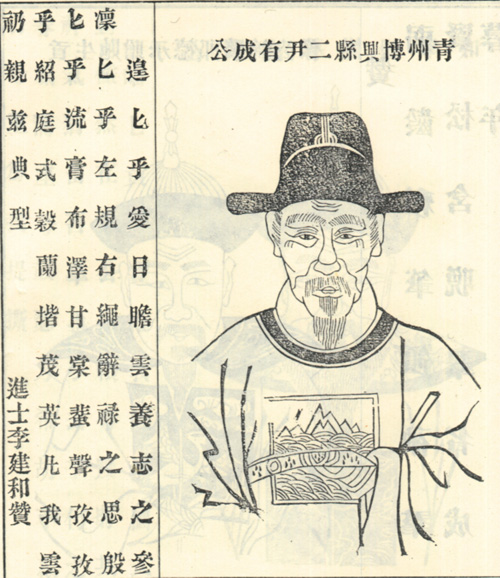 青州博興縣二尹有成公
遑匕乎愛日瞻雲養志之參
凜匕乎左規右繩辭祿之思殷
匕乎流膏布澤甘棠蜚聲孜孜
乎紹庭式穀蘭堦茂英凡我雲
礽親兹典型 進士李建和贊